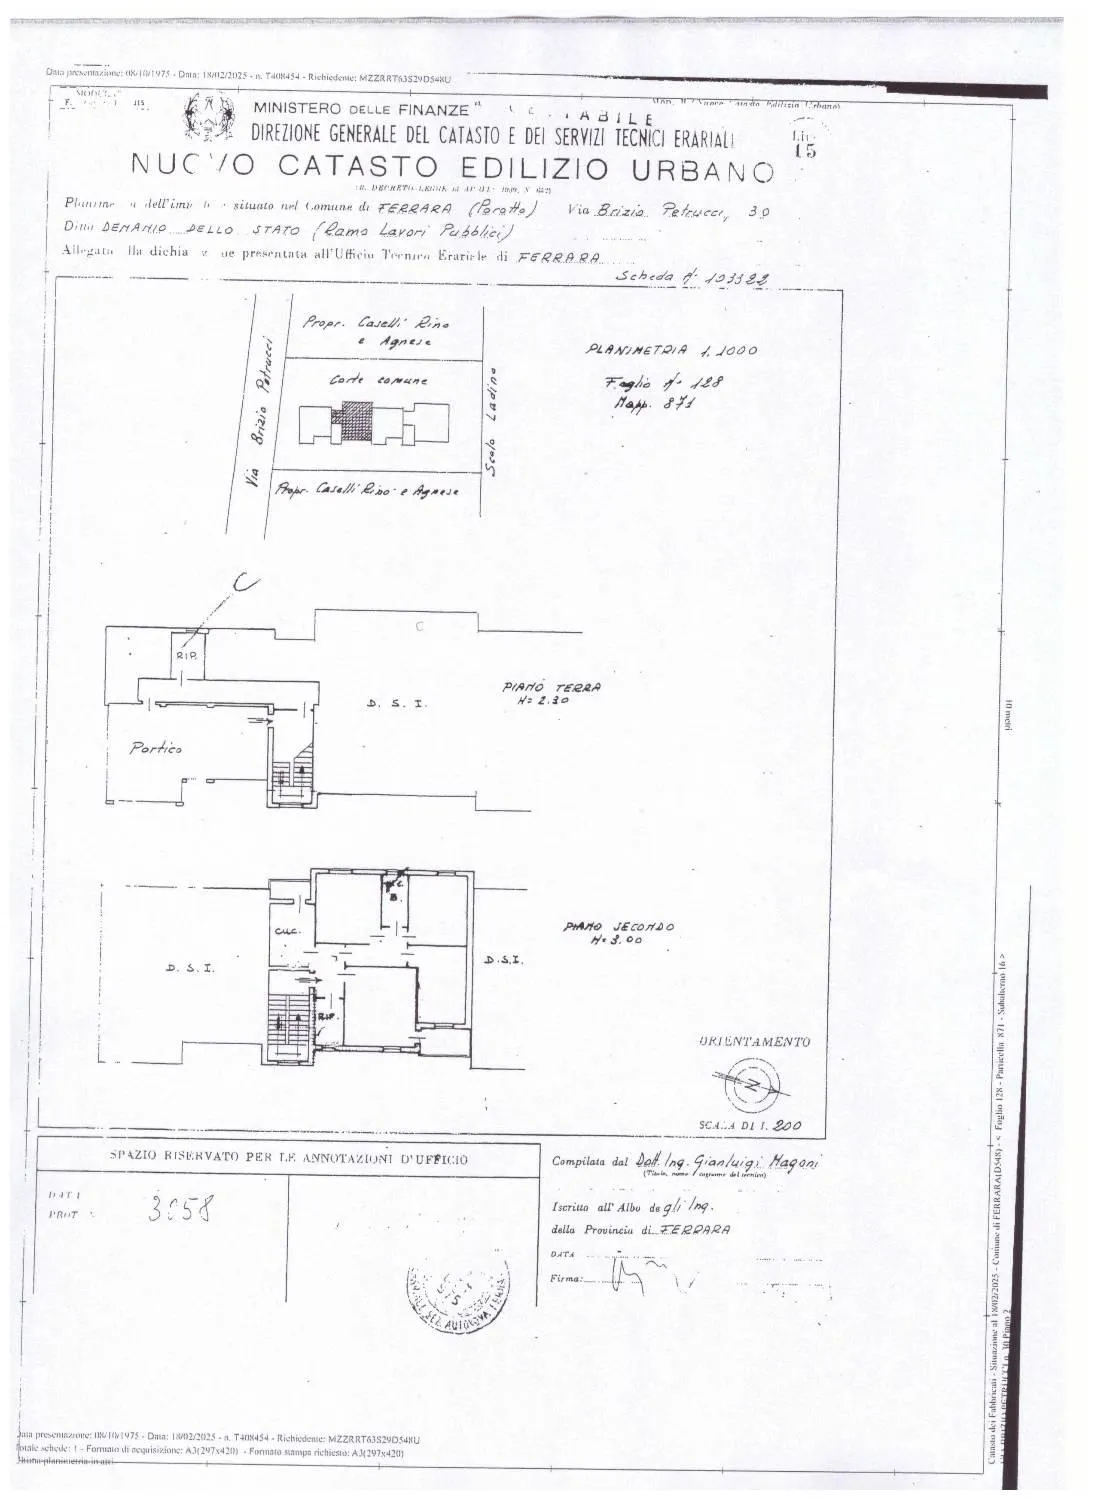 Data presentazione: 08/10/1975 - Data: 18/02/2025 - n. T408454 - Richiedente: MZZRRT63S29D548U
MINISTERO DELLE FINANZE
DIREZIONE GENERALE DEL CATASTO E DEI SERVIZI TECNICI ERARIALI
15
NUOVO CATASTO EDILIZIO URBANO
situato nel Comune di FERRARA (Porotto) Via Brizio Petrucci, 30
Ditta DEMANIO DELLO STATO (Ramo Lavori Pubblici)
presentata all'Ufficio Tecnico Erariale di FERRARA
Scheda N° 103322
Propr. Caselli Rino
e Agnese
Corte comune
Via Brizio Petrucci
Scolo Ladino
Propr. Caselli Rino e Agnese
PLANIMETRIA 1.1000
Foglio N° 128
Mapp. 871
C
C
RIP.
PIANO TERRA
H= 2.30
D. S. I.
Portico
10 metri
B.
CUC.
PIANO SECONDO
H= 3.00
D. S. I.
D.S.I.
RIP.
ORIENTAMENTO
N
SCALA DI 1. 200
SPAZIO RISERVATO PER LE ANNOTAZIONI D'UFFICIO
DATA
PROT
Compilata dal Dott. Ing. Gianluigi Magoni
(Titolo, nome e cognome del tecnico)
Iscritto all'Albo degli Ing.
della Provincia di FERRARA
DATA
Firma:
Catasto dei Fabbricati - Situazione al 18/02/2025 - Comune di FERRARA(D548) - < Foglio 128 - Particella 871 - Subalterno 16 >
VIA BRIZIO PETRUCCI n. 30 Piano 2
Data presentazione: 08/10/1975 - Data: 18/02/2025 - n. T408454 - Richiedente: MZZRRT63S29D548U
Totale schede: 1 - Formato di acquisizione: A3(297x420) - Formato stampa richiesto: A3(297x420)
Ultima planimetria in atti